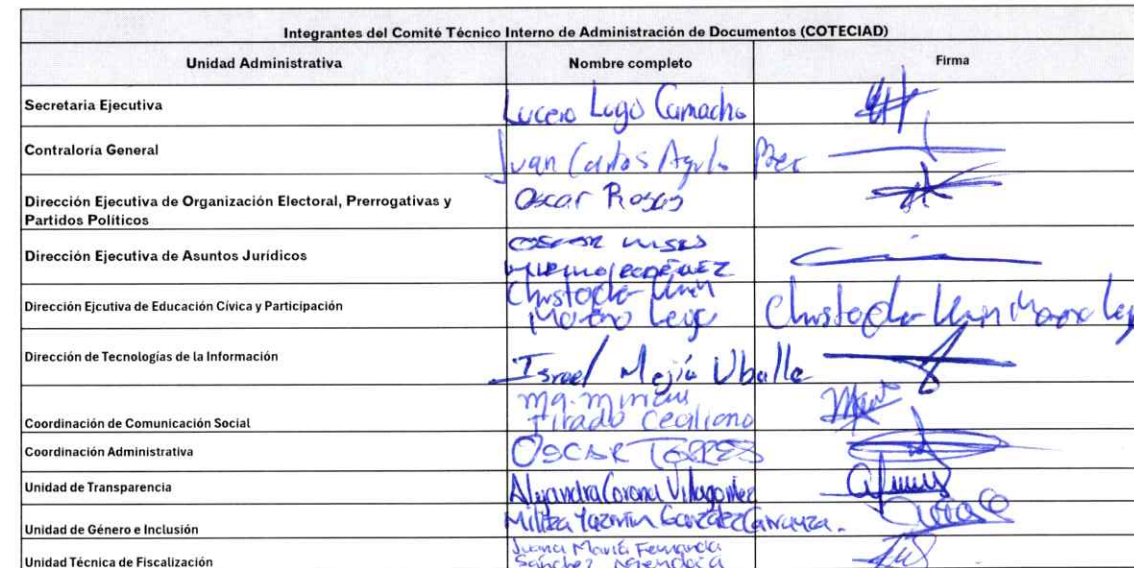 Integrantes del Comité Técnico Interno de Administración de Documentos (COTECIAD)
Unidad Administrativa Nombre completo Firma
Secretaria Ejecutiva Lucero Lugo Camacho
Contraloría General Juan Carlos
Dirección Ejecutiva de Organización Electoral, Prerrogativas y Partidos Políticos Oscar Rosas
Dirección Ejecutiva de Asuntos Jurídicos
Dirección Ejcutiva de Educación Cívica y Participación
Moreno
Dirección de Tecnologías de la Información Israel Mejía Uballe
Ma. Miriam
Coordinación de Comunicación Social Tirado
Coordinación Administrativa OSCAR TORRES
Unidad de Transparencia Alejandra Corona Villagomez
Unidad de Género e Inclusión Militza Yazmín González Carranza.
Juana María Fernanda
Unidad Técnica de Fiscalización Sánchez